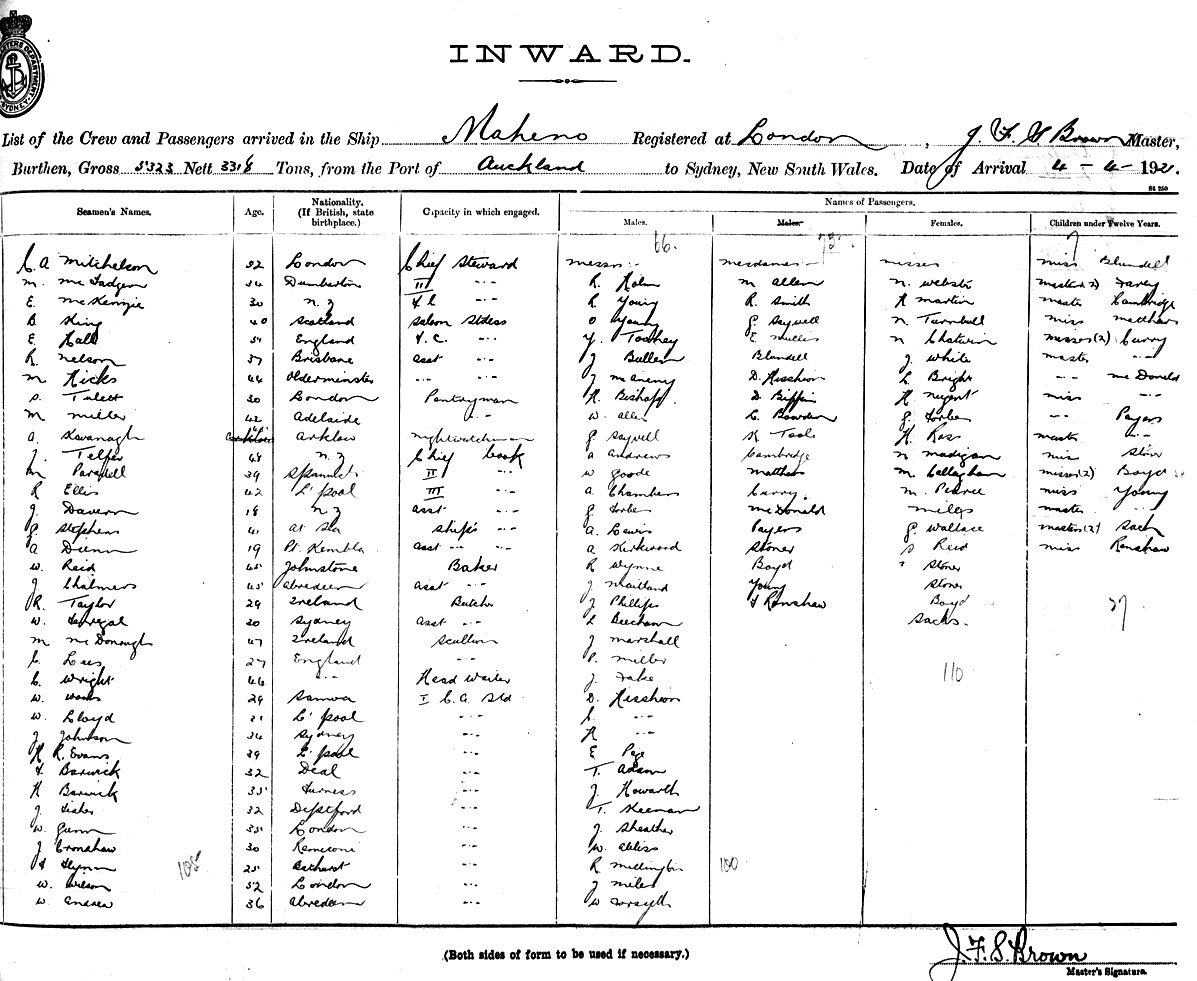 CUSTOMS DEPARTMENT SYDNEY
INWARD.
List of the Crew and Passengers arrived in the Ship Maheno Registered at London, J. F. S Brown Master,
Burthen, Gross 5323 Nett 3318 Tons, from the Port of Auckland to Sydney, New South Wales. Date of Arrival 4 - 4 - 192
St 250
Seamen's Names. Age. Nationality. (If British, state birthplace.) Capacity in which engaged. Names of Passengers.
Males. Males. Females. Children under Twelve Years.
66. 7
C. A Mitchelson 52 London Chief Steward messrs mesdames misses miss Blundell
m. mc Fadgen 34 Dumbarton II -"- R. Holm m allen n. webster masters 2) Farey
E. mcKenzie 30 n. z R Young R. Smith H martin master Cambridge
B. King 40 Scotland Saloon Stdess O Young G. Saywell n Turnbull miss matthews
E Hall England Y. Toohey E n Chatwin misses (2) Curry
R. nelson 37 Brisbane asst -"- J Bullen Blundell J. white master -"-
m Hicks 44 -"- -"- J mcaneny D. Hischion L. Bright -"- mc Donald
30 London Pantryman H. Bishop D Biffin H nugent miss -"-
m miller 42 Adelaide -"- w. allen C. Bowden G. Forbes -"- Payers
a. Kavanagh Arklow nightwatchman G Saywell K Toole H. Ross master -"-
J. Telfer 48 n. z Chief Cook a andrews Cambridge n madigan miss Stow
m 39 II -"- w goode matthews m. Callaghan misses (2) Boyd
R Ellis 42 L'pool III -"- a Chambers Curry. m. Pearce miss Young
J. Davern 18 n z asst -"- G Forbes mcDonald miles master -"-
G. Stephens 41 at Sea ship's -"- a. Lewis Payers G. wallace masters (2) Sach
a Dunn 19 Pt. Kembla asst -"- -"- a Kirkwood Stoner S Reid miss Renshaw
w. Reid 45 Johnstone Baker R Wynne Boyd " Stoner
J Chalmers 45 aberdeen asst -"- J maitland Young Stoner
R. Taylor 29 Ireland Butcher J Phillips F Renshaw Boyd 27
w. 20 Sydney asst -"- L Beecham Sachs.
m mcDonough 47 Ireland Scullion J marshall
C. Lees 27 England -"- P. miller
C. Wright 44 -"- Head waiter J. 110
w. 29 Samoa I C. a. Std D. Hischion
w. Lloyd 31 L'pool -"- C. -"-
J Johnson 34 Sydney -"- H -"-
H R. Evans 39 L'pool -"- E Page
F Barwick 32 Deal -"- T. Adam
H Barwick 35 Furness -"- J. Howarth
J. Fisher 32 Deptford -"- T. Keenan
w. Gunn 35 London -"- J. Sheather
J Cronshaw 30 -"- w. abliss
F Flynn 105 25 Bathurst -"- R millington 100
w. wilson 52 London -"- J miles
w. 36 aberdeen -"- w Forsyth
(Both sides of form to be used if necessary.) J. F. S. Brown
Master's Signature.